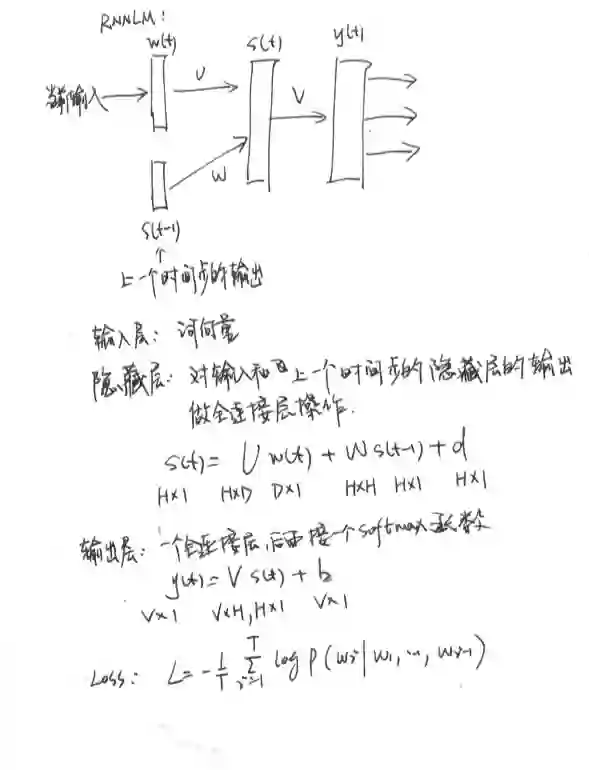 RNNLM:
w(t) s(t) y(t)
当前输入 U V
W
s(t-1)
↑
上一个时间步的输出
输入层: 词向量
隐藏层: 对输入和上一个时间步的隐藏层的输出
做全连接层操作.
s(t) = U w(t) + W s(t-1) + d
H×1 H×D D×1 H×H H×1 H×1
输出层: 一个全连接层,后面接一个softmax函数
y(t) = V s(t) + b
V×1 V×H, H×1 V×1
Loss: L = -1/T T∑j=1 log P(wj | w1, ..., wj-1)